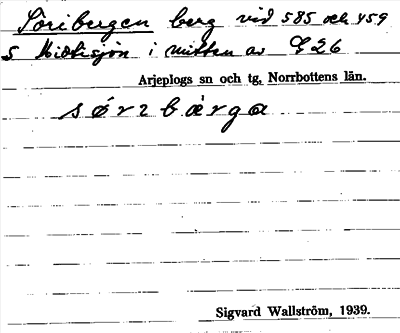 Söribergen berg vid 585 och 459
S Miðtisjön i mitten av G26
Arjeplogs sn och tg. Norrbottens län.
sørɩbærga
Sigvard Wallström, 1939.